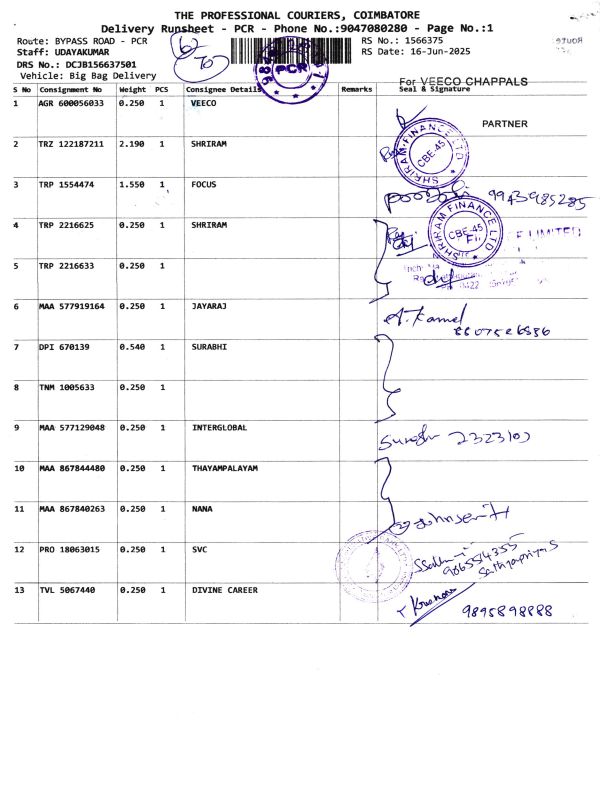 THE PROFESSIONAL COURIERS, COIMBATORE
Delivery Runsheet - PCR - Phone No.:9047080280 - Page No.:1
Route: BYPASS ROAD - PCR RS No.: 1566375
Staff: UDAYAKUMAR RS Date: 16-Jun-2025
DRS No.: DCJB156637501
Vehicle: Big Bag Delivery
PCR
For VEECO CHAPPALS
S No Consignment No Weight PCS Consignee Details Remarks Seal & Signature
1 AGR 600056033 0.250 1 VEECO
PARTNER
2 TRZ 122187211 2.190 1 SHRIRAM
SHRIRAM FINANCE LTD
CBE-45
3 TRP 1554474 1.550 1 FOCUS
9943985285
4 TRP 2216625 0.250 1 SHRIRAM
SHRIRAM FINANCE LTD
CBE-45
E LIMITED
5 TRP 2216633 0.250 1
6 MAA 577919164 0.250 1 JAYARAJ
A. Kamel
7 DPI 670139 0.540 1 SURABHI
8 TNM 1005633 0.250 1
9 MAA 577129048 0.250 1 INTERGLOBAL
Suresh 2323103
10 MAA 867844480 0.250 1 THAYAMPALAYAM
11 MAA 867840263 0.250 1 NANA
12 PRO 18063015 0.250 1 SVC
13 TVL 5067440 0.250 1 DIVINE CAREER
9895898888